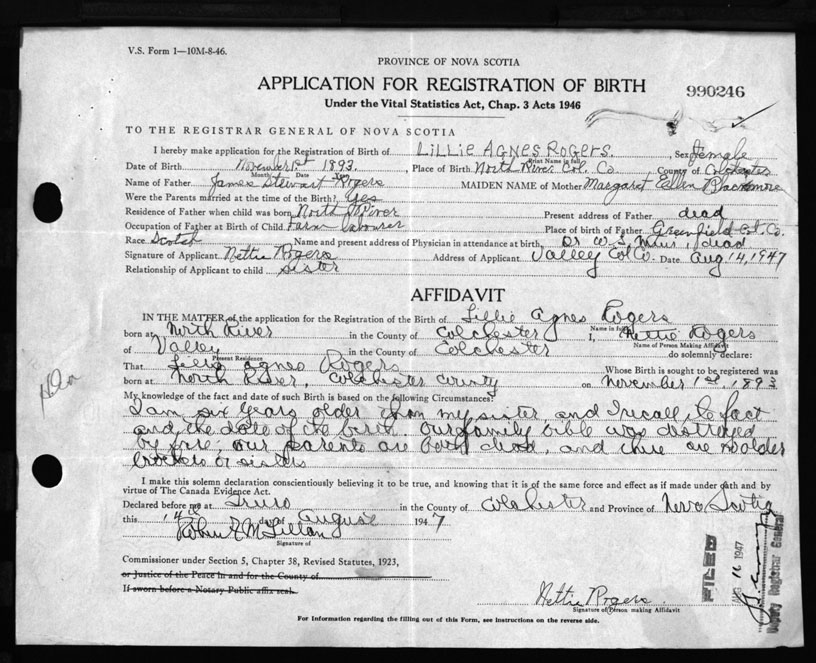 V.S. Form 1—10M-8-46.
PROVINCE OF NOVA SCOTIA
APPLICATION FOR REGISTRATION OF BIRTH
990246
Under the Vital Statistics Act, Chap. 3 Acts 1946
TO THE REGISTRAR GENERAL OF NOVA SCOTIA
I hereby make application for the Registration of Birth of LILLIE AGNES ROGERS. Sex female
Print Name in full
Date of Birth November 1st 1893. Place of Birth North River Col. Co. County of Colchester
Month Date
Name of Father James Stewart Rogers MAIDEN NAME of Mother Margaret Ellen Blackmore
Were the Parents married at the time of Birth? Yes
Residence of Father when child was born North River Present address of Father dead
Occupation of Father at Birth of Child Farm labourer Place of birth of Father Greenfield Col. Co.
Race Scotch Name and present address of Physician in attendance at birth, Dr W. S. Muir, dead
Signature of Applicant Nettie Rogers Address of Applicant Valley Col Co. Date Aug 14, 1947
Relationship of Applicant to child sister
AFFIDAVIT
IN THE MATTER of the application for the Registration of the Birth of Lillie Agnes Rogers
Name in full
born at North River in the County of Colchester I, Nettie Rogers
Name of Person Making Affidavit
of Valley in the County of Colchester do solemnly declare:
Present Residence
That Agnes Rogers Whose Birth is sought to be registered was
born at North River, Colchester County on November 1st, 1893
My knowledge of the fact and date of such Birth is based on the following Circumstances:
I am six years older than my sister and I recall the fact
and the date of the birth. Our family bible was destroyed
by fire; our parents are both dead, and there are no older
brothers or sisters
I make this solemn declaration conscientiously believing it to be true, and knowing that it is of the same force and effect as if made under oath and by
virtue of The Canada Evidence Act.
Declared before me at Truro in the County of Colchester and Province of Nova Scotia
this 14th day of August 1947
Signature of
Commissioner under Section 5, Chapter 38, Revised Statutes, 1923,
or Justice of the Peace in and for the County of
If sworn before a Notary Public affix seal.
Nettie Rogers.
Signature of Person making Affidavit
For Information regarding the filling out of this Form, see instructions on the reverse side.
FILED
1947
Deputy Registrar General